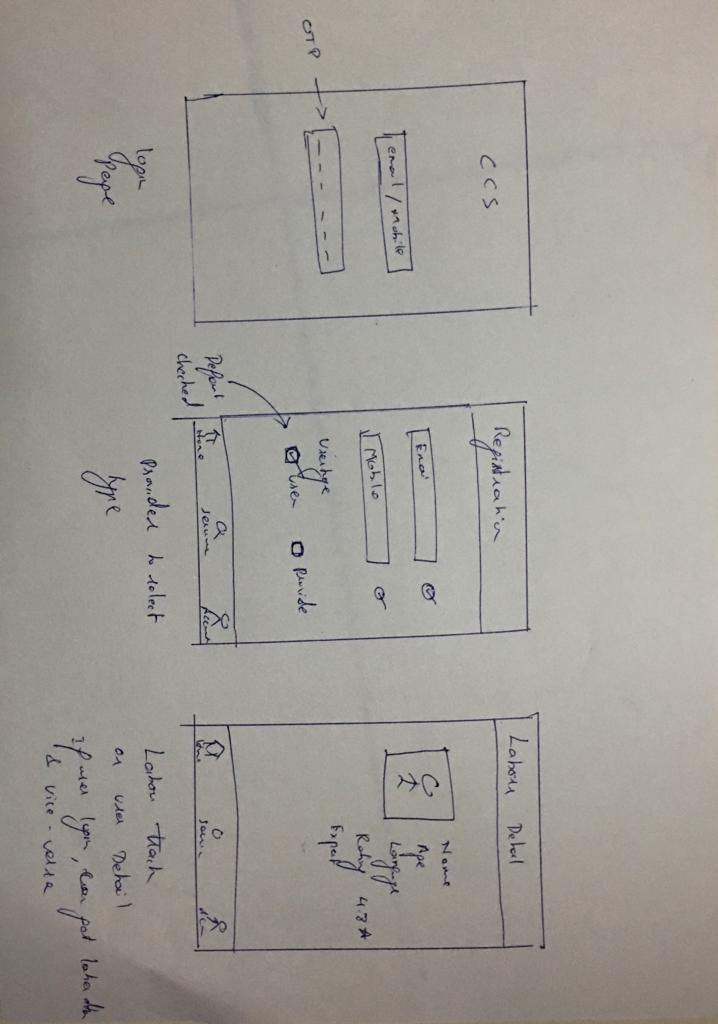 CCS
email / Mobile
OTP
Login
Page
Registration
Email
Mobile
Usertype
User
Provide
Default
checked
Home
Account
Provider to select
type
Labour Detail
Name
Age
Language
Rating 4.8 ★
Expert
Labour
or user Detail
If user login, can get
& vice-versa